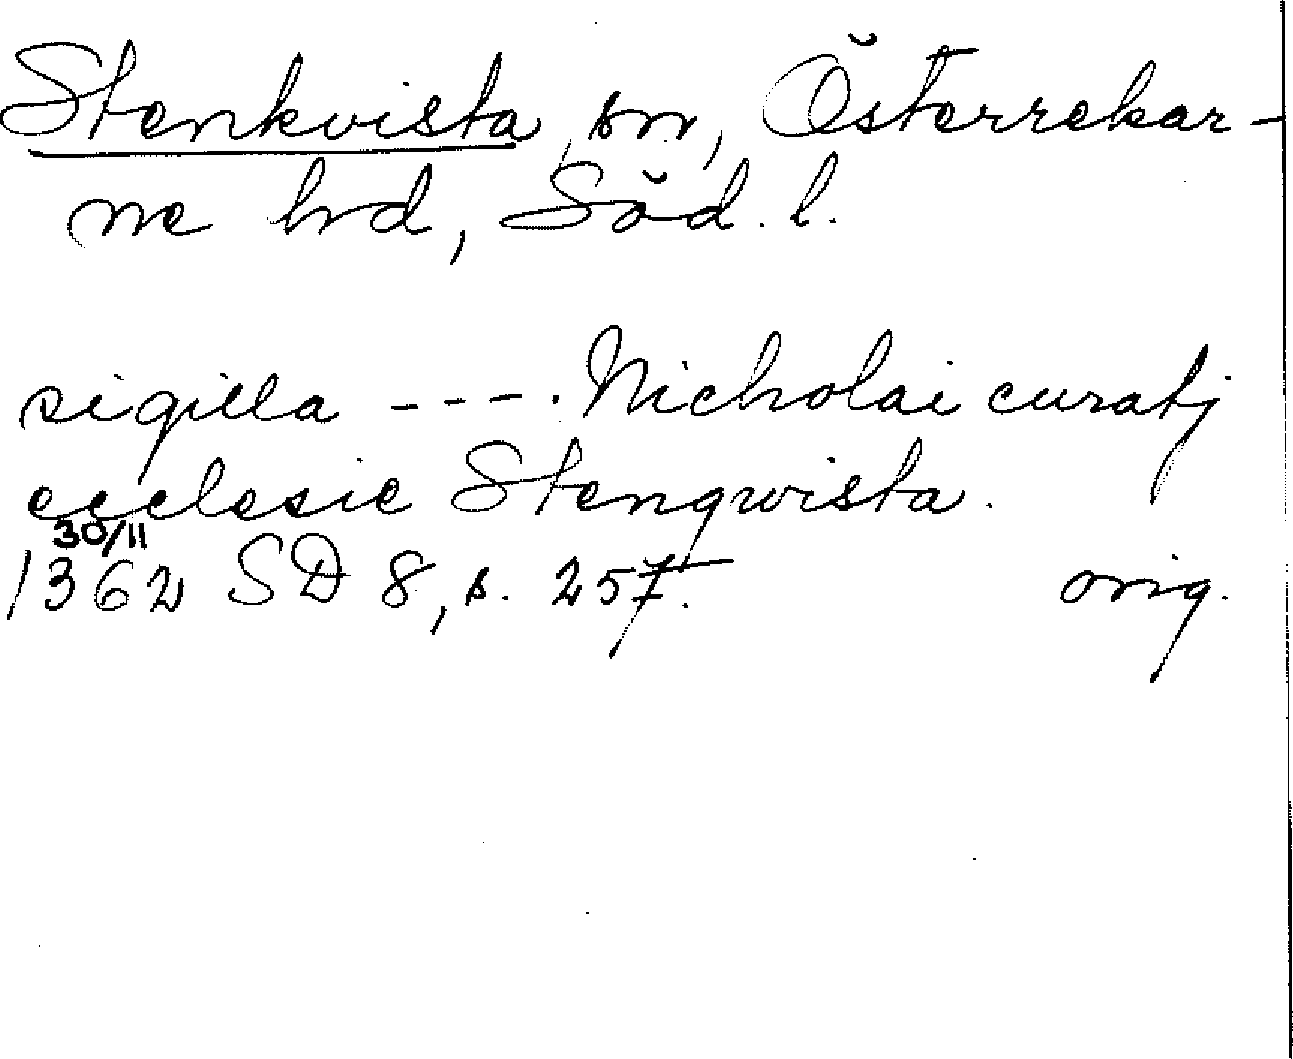 Stenkvista, sn, Österrekar-
ne hd, Söd. l.
sigilla ---. Nicholai curatj
ecclesie Stenqwista.
30/11
1362 SD 8, s. 257. orig.